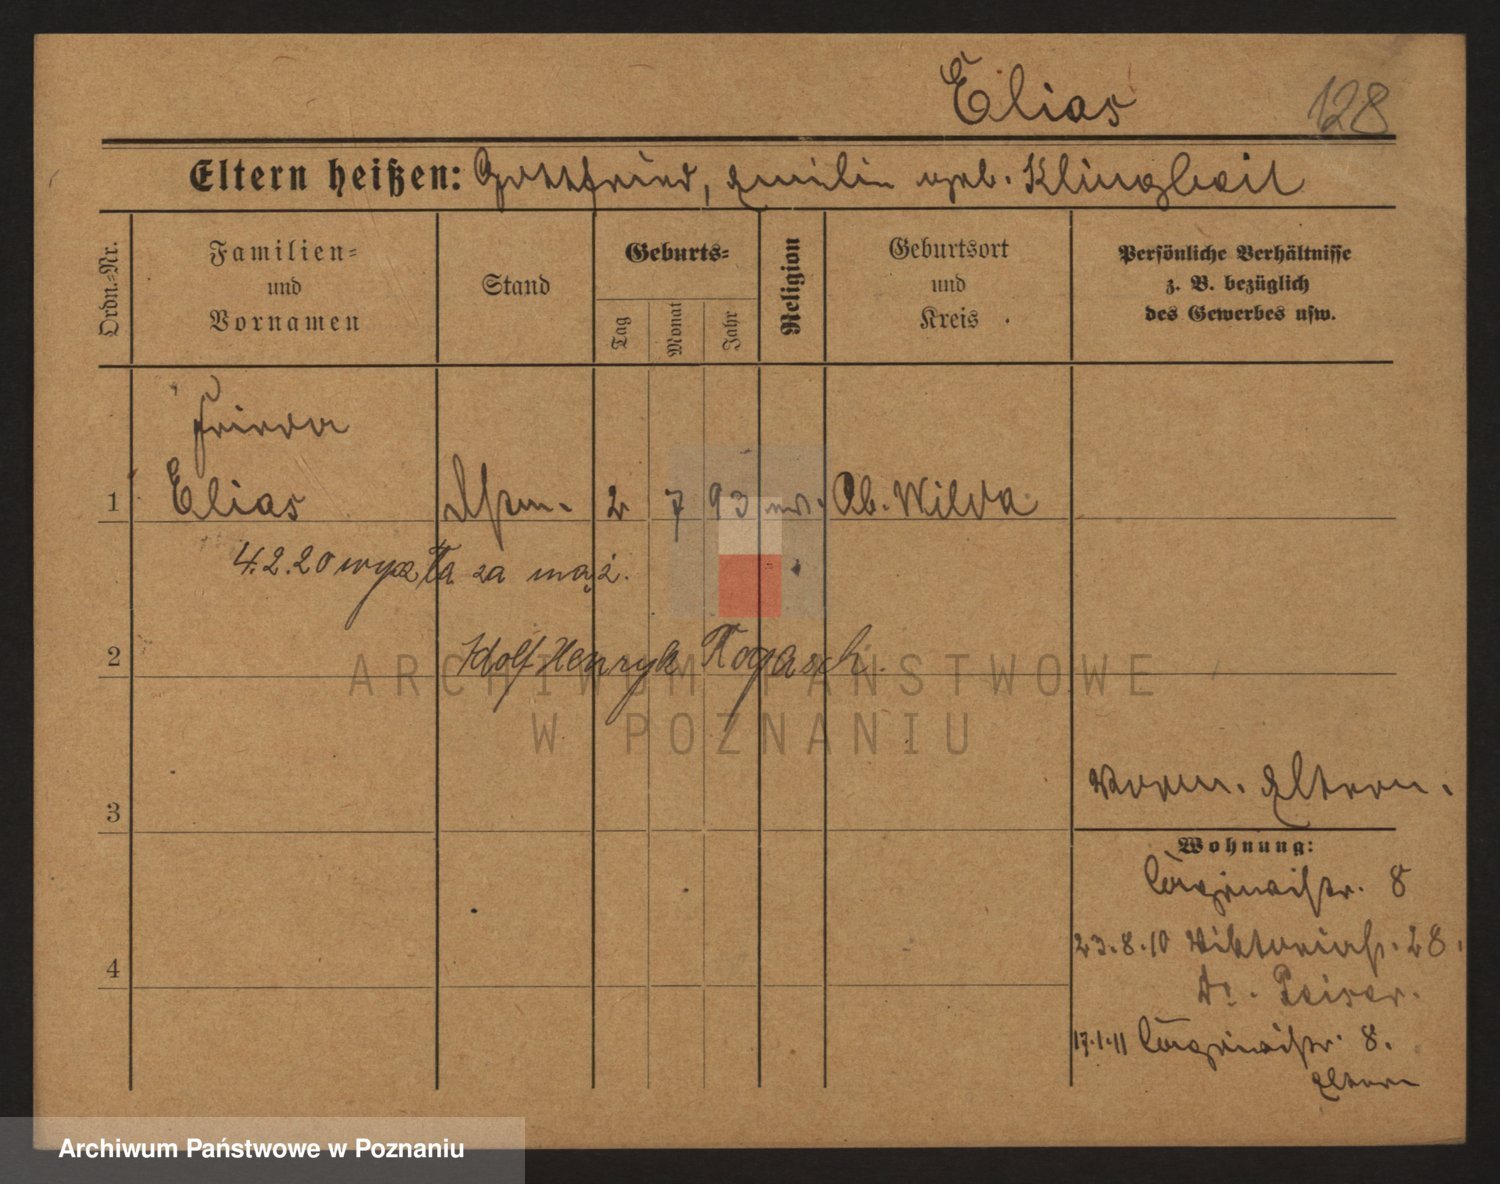 Elias 128
Eltern heißen: Gottfried, Emilie geb. Klingbeil
Ordn.-Nr.
Familien- und Vornamen
Stand
Geburts-
Tag
Monat
Jahr
Religion
Geburtsort und Kreis
Persönliche Verhältnisse z. B. bezüglich des Gewerbes usw.
Frieda
1 Elias 2 7 93 ev. Ob. Wilda
4.2.20 wyszła za mąż.
2 Adolf Henryk Rogasch.
ARCHIWUM PAŃSTWOWE
W POZNANIU
Eltern.
3
Wohnung:
8
23.8.10 Viktoriastr. 28.
4
Dr. Peiser.
17.1.11 8.
Eltern
Archiwum Państwowe w Poznaniu